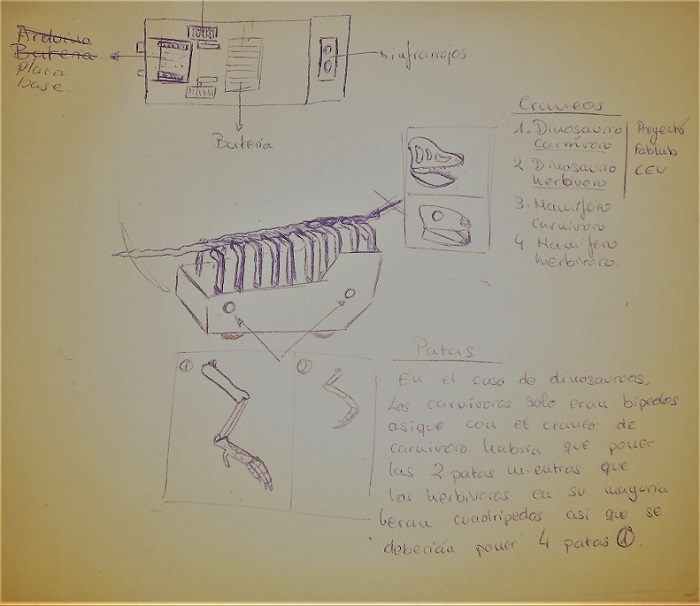 Arduino
Bateria
Placa
base.
infrarojos
Bateria
Craneos
1. Dinosauro
carnivoro
2. Dinosauro
herbivoro
3. Mamifero
carnivoro
4. Mamifero
herbivoro.
Proyecto
Fablab
CEU
Patas
1
2
En el caso de dinosauros,
los carnivoros solo eran bipedos
asique con el craneo de
carnivoro habria que poner
las 2 patas mientras que
los herbivoros en su mayoria
eran cuadripedos asi que se
deberian poner 4 patas 1.